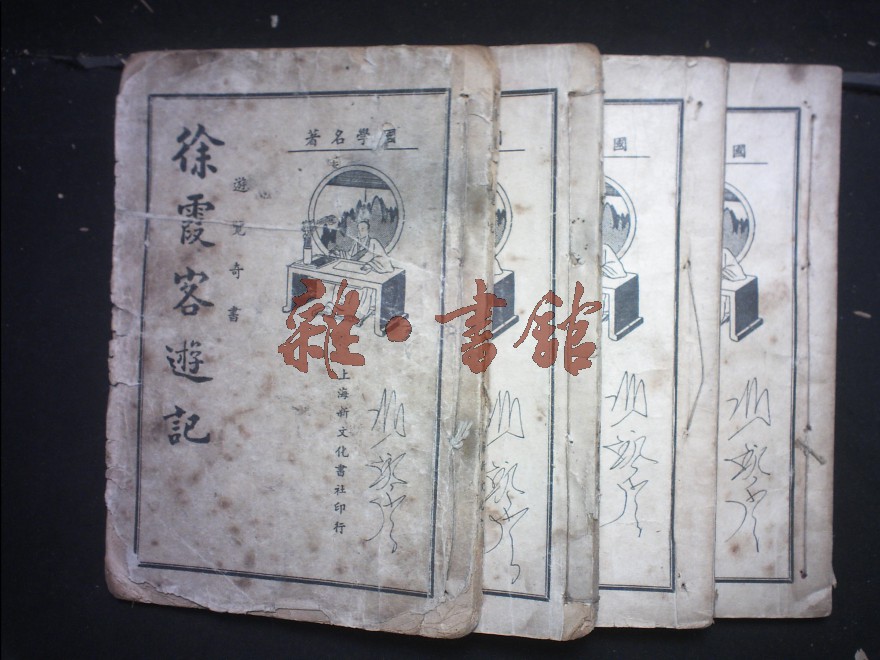 國學名著
徐霞客遊記
遊覽奇書
上海新文化書社印行
雜·書館
國
國